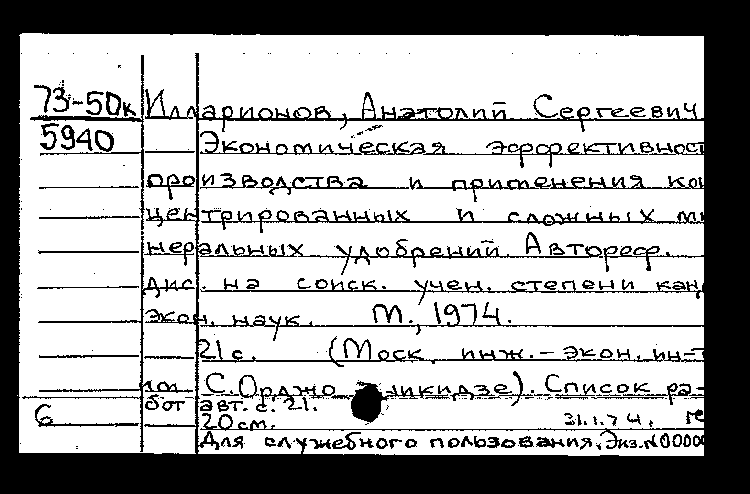 73-50к Илларионов, Анатолий Сергеевич
5940 Экономическая эффективност
производства и применения кон
центрированных и сложных ми
неральных удобрений. Автореф.
дис. на соиск. учен. степени канд
экон. наук. М., 1974.
21 с. (Моск. инж.-экон. ин-т
им. С. Орджоникидзе). Список ра-
бот авт. с. 21.
6 20 см. 31.1.74.
Для служебного пользования. Экз. N 0000